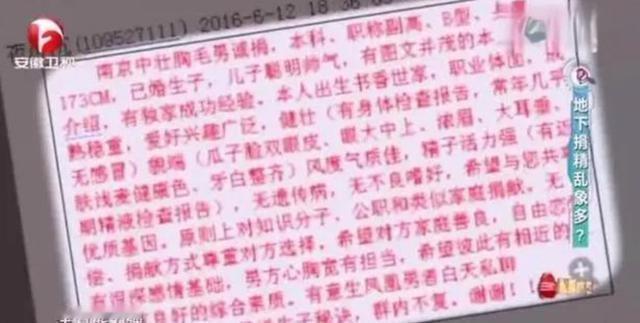 (109527111) 2016-6-12 18:36
安徽卫视
南京中壮胸毛男诚捐，本科、职称副高、B型，上
173CM，已婚生子，儿子聪明帅气，有图文并茂的本
介绍，有独家成功经验。本人出生书香世家，职业体面，成
熟稳重，爱好兴趣广泛，健壮（有身体检查报告，常年几乎
无感冒）貌端（瓜子脸双眼皮、眼大中上、浓眉、大耳垂、
肤浅麦健康色、牙白整齐）风度气质佳，精子活力强（有近
期精液检查报告），无遗传病，无不良嗜好，希望与您共
优质基因。原则上对知识分子、公职和类似家庭捐献。无
偿、捐献方式尊重对方选择，希望对方家庭善良，自由恋
有深厚感情基础，男方心胸宽有担当，希望彼此有相近的
良好的综合素质。有意生凤凰男者白天私聊
生子秘诀，群内不复。谢谢！
地下捐精乱象多？